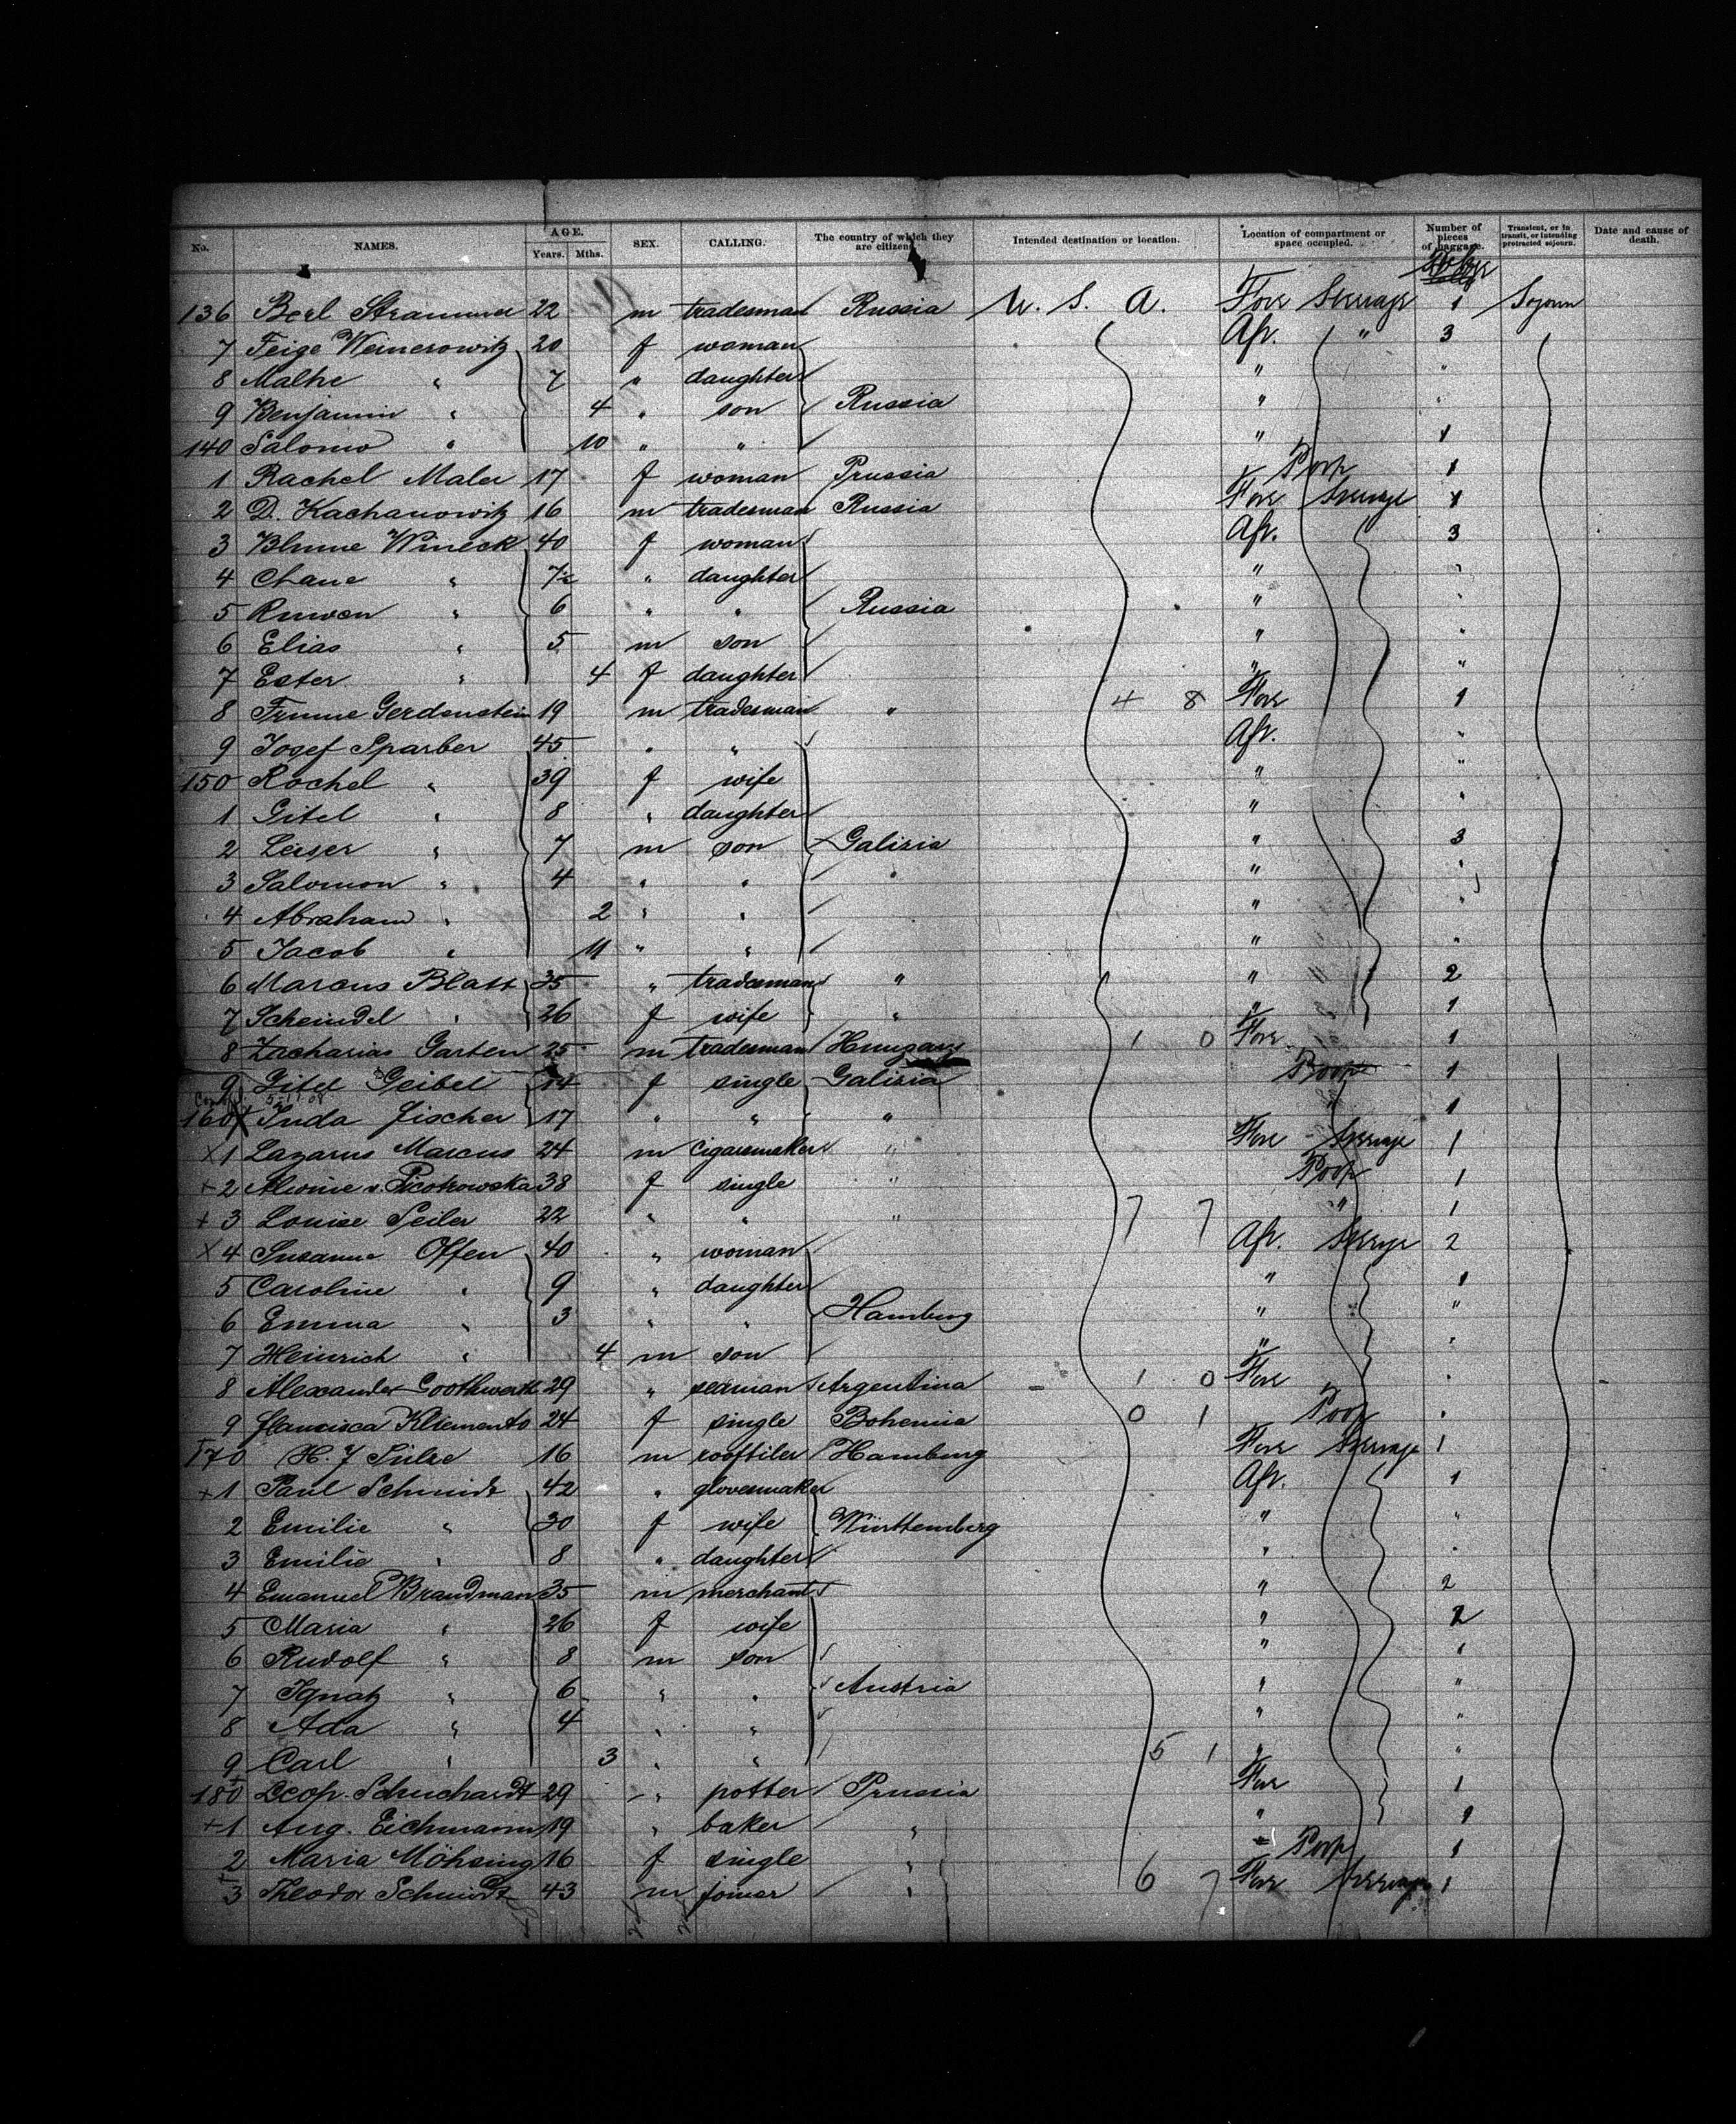 No. NAMES. AGE. Years. Mths. SEX. CALLING. The country of which they are citizens. Intended destination or location. Location of compartment or space occupied. Number of pieces of baggage. Transient, or in transit, or intending protracted sojourn. Date and cause of death.
136 Berl 22 m tradesman Russia U. S. A. Fore Steerage 1 Sojourn
7 Feige Weinerowitz 20 f woman Aft. " 3
8 Malke " 7 " daughter "
9 Benjamin " 4 " son Russia "
140 Salomo " 10 " " " 1
1 Rachel Maler 17 f woman Prussia Poop 1
2 D. Kachanowitz 16 m tradesman Russia Fore Steerage 1
3 Blume Wineck 40 f woman Aft. 3
4 Chane " 7½ " daughter " "
5 Ruwen " 6 " " Russia " "
6 Elias " 5 m son " "
7 Ester " 4 f daughter " "
8 Frume Gerdenstein 19 m tradesman " 4 8 Fore 1
9 Josef Sparber 45 " " Aft. "
150 Rachel " 39 f wife " "
1 Gitel " 8 " daughter " "
2 Leiser " 7 m son Galizia " 3
3 Salomon " 4 " " " "
4 Abraham " 2 " " " "
5 Jacob " 11 " " " "
6 Marcus Blatt 35 " tradesman " " " 2
7 Scheindel " 26 f wife " " 1
8 Zacharias Garten 25 m tradesman Hungary 1 0 Fore 1
9 Gitel Geibel 14 f single Galizia Poop 1
5-11-08
160 Juda Fischer 17 " " " " 1
1 Lazarus Marcus 24 m cigarsmaker " Fore Steerage 1
2 v. Piotrowska 38 f single " Poop 1
3 Louise Seiler 22 " " " 7 7 " 1
4 Susanne Offen 40 " woman Aft. Steerage 2
5 Caroline " 9 " daughter " 1
6 Emma " 3 " " Hamburg " "
7 Heinrich " 4 m son " "
8 Alexander 29 " seaman Argentina 1 0 Fore "
9 Klemento 24 f single Bohemia 0 1 Poop "
170 H. J. Sülze 16 m rooftiler Hamburg Fore Steerage 1
1 Paul Schmidt 42 " glovesmaker Aft. 1
2 Emilie " 30 f wife Württemberg " "
3 Emilie " 8 " daughter " "
4 Emanuel Brandman 35 m merchant " 2
5 Maria " 26 f wife " 2
6 Rudolf " 8 m son " "
7 Ignatz " 6 " " Austria " "
8 Ada " 4 " " " "
9 Carl " 3 " " 5 1 " "
180 Leop. Schuchardt 29 " potter Prussia Fore 1
1 Aug. Eichmann 19 " baker " " 1
2 Maria Möhsing 16 f single " Poop 1
3 Theodor Schmidt 43 m joiner " 6 7 Fore Steerage 1